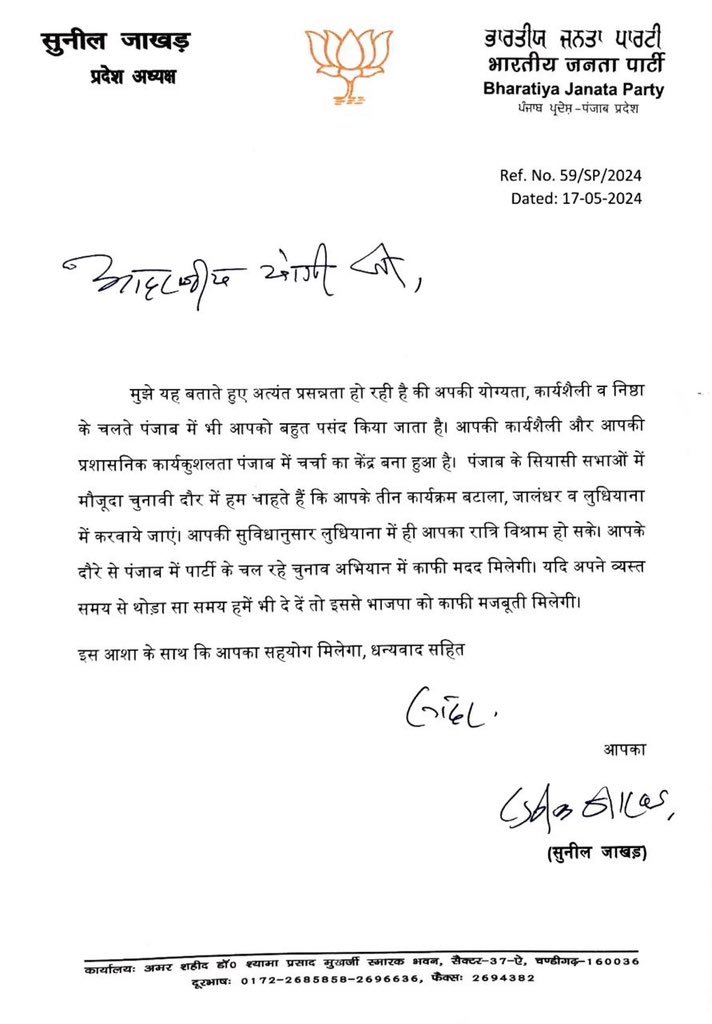 सुनील जाखड़
प्रदेश अध्यक्ष
ਭਾਰਤੀਯ ਜਨਤਾ ਪਾਰਟੀ
भारतीय जनता पार्टी
Bharatiya Janata Party
ਪੰਜਾਬ ਪ੍ਰਦੇਸ਼-पंजाब प्रदेश
Ref. No. 59/SP/2024
Dated: 17-05-2024
आदरणीय योगी जी,
मुझे यह बताते हुए अत्यंत प्रसन्नता हो रही है की अपकी योग्यता, कार्यशैली व निष्ठा
के चलते पंजाब में भी आपको बहुत पसंद किया जाता है। आपकी कार्यशैली और आपकी
प्रशासनिक कार्यकुशलता पंजाब में चर्चा का केंद्र बना हुआ है। पंजाब के सियासी सभाओं में
मौजूदा चुनावी दौर में हम चाहते हैं कि आपके तीन कार्यक्रम बटाला, जालंधर व लुधियाना
में करवाये जाएं। आपकी सुविधानुसार लुधियाना में ही आपका रात्रि विश्राम हो सके। आपके
दौरे से पंजाब में पार्टी के चल रहे चुनाव अभियान में काफी मदद मिलेगी। यदि अपने व्यस्त
समय से थोड़ा सा समय हमें भी दे दें तो इससे भाजपा को काफी मजबूती मिलेगी।
इस आशा के साथ कि आपका सहयोग मिलेगा, धन्यवाद सहित
सादर.
आपका
(सुनील जाखड़)
कार्यालयः अमर शहीद डॉ० श्यामा प्रसाद मुखर्जी स्मारक भवन, सैक्टर-37-ऐ, चण्डीगढ़-160036
दूरभाषः 0172-2685858-2696636, फैक्सः 2694382